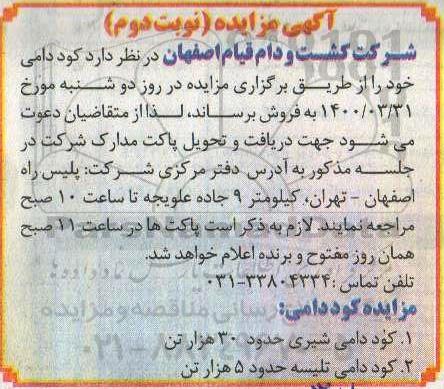 آگهی مزایده (نوبت دوم)
شرکت کشت و دام قیام اصفهان در نظر دارد کود دامی
خود را از طریق برگزاری مزایده در روز دو شنبه مورخ
۱۴۰۰/۰۳/۳۱ به فروش برساند، لذا از متقاضیان دعوت
می شود جهت دریافت و تحویل پاکت مدارک شرکت در
جلسه مذکور به آدرس دفتر مرکزی شرکت: پلیس راه
اصفهان - تهران، کیلومتر ۹ جاده علویجه تا ساعت ۱۰ صبح
مراجعه نمایند. لازم به ذکر است پاکت ها در ساعت ۱۱ صبح
همان روز مفتوح و برنده اعلام خواهد شد.
تلفن تماس: ۳۳۸۰۴۳۳۴-۰۳۱
مزایده کود دامی:
۱. کود دامی شیری حدود ۳۰ هزار تن
۲. کود دامی تلیسه حدود ۵ هزار تن